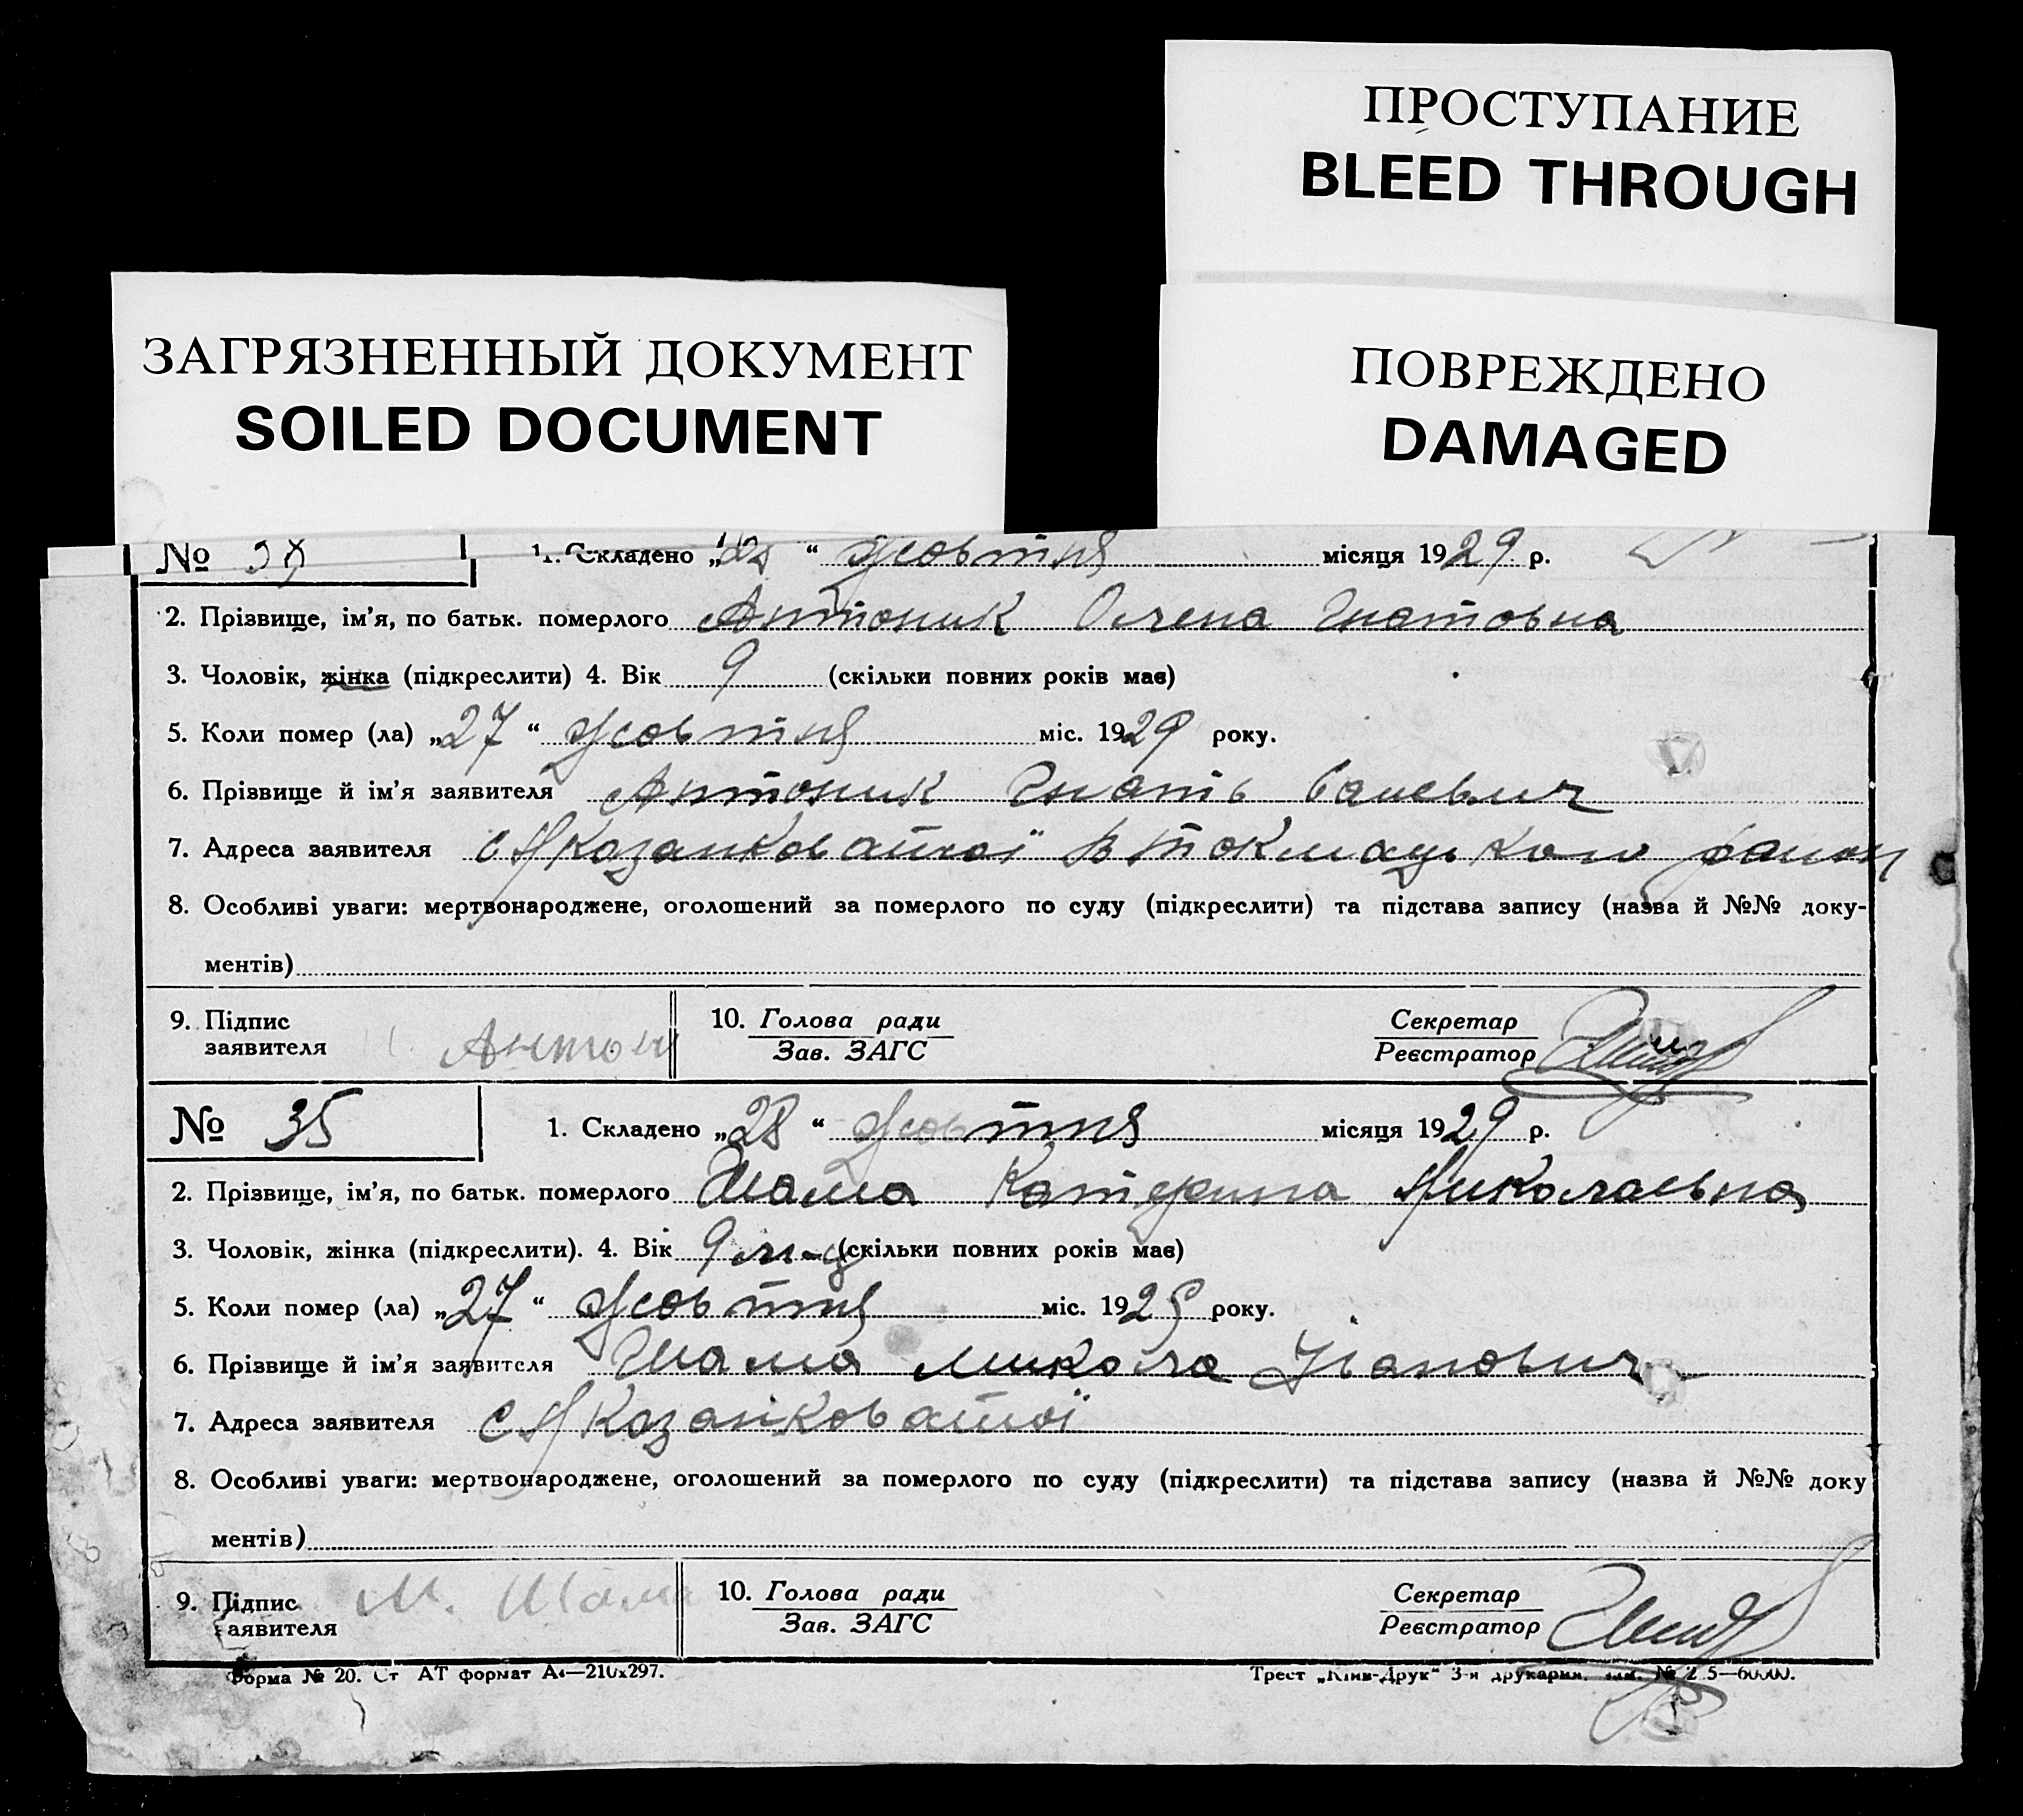 ПРОСТУПАНИЕ
BLEED THROUGH
ЗАГРЯЗНЕННЫЙ ДОКУМЕНТ
SOILED DOCUMENT
ПОВРЕЖДЕНО
DAMAGED
№ 34 1. Складено „28“ жовтня місяця 1929 р.
2. Прізвище, ім’я, по батьк. померлого Антоник Олена Гнатовна
3. Чоловік, жінка (підкреслити) 4. Вік 9 (скільки повних років має)
5. Коли помер (ла) „27“ жовтня міс. 1929 року.
6. Прізвище й ім’я заявителя Антоник Гнать
7. Адреса заявителя с М Казанковатої В Токмацького району
8. Особливі уваги: мертвонароджене, оголошений за померлого по суду (підкреслити) та підстава запису (назва й №№ доку-
ментів)
9. Підпис заявителя Антони
10. Голова ради
Зав. ЗАГС
Секретар
Реєстратор
№ 35 1. Складено „28“ жовтня місяця 1929 р.
2. Прізвище, ім’я, по батьк. померлого Шама Катерина Миколаевна
3. Чоловік, жінка (підкреслити). 4. Вік 9 м-ц (скільки повних років має)
5. Коли помер (ла) „27“ жовтня міс. 1929 року.
6. Прізвище й ім’я заявителя Шама Микола Іванович
7. Адреса заявителя с М Казанковатої
8. Особливі уваги: мертвонароджене, оголошений за померлого по суду (підкреслити) та підстава запису (назва й №№ доку
ментів)
9. Підпис заявителя М. Шама
10. Голова ради
Зав. ЗАГС
Секретар
Реєстратор
Форма № 20. Ст АТ формат А4—210x297. Трест „Київ-Друк“ 3-я друкарня.